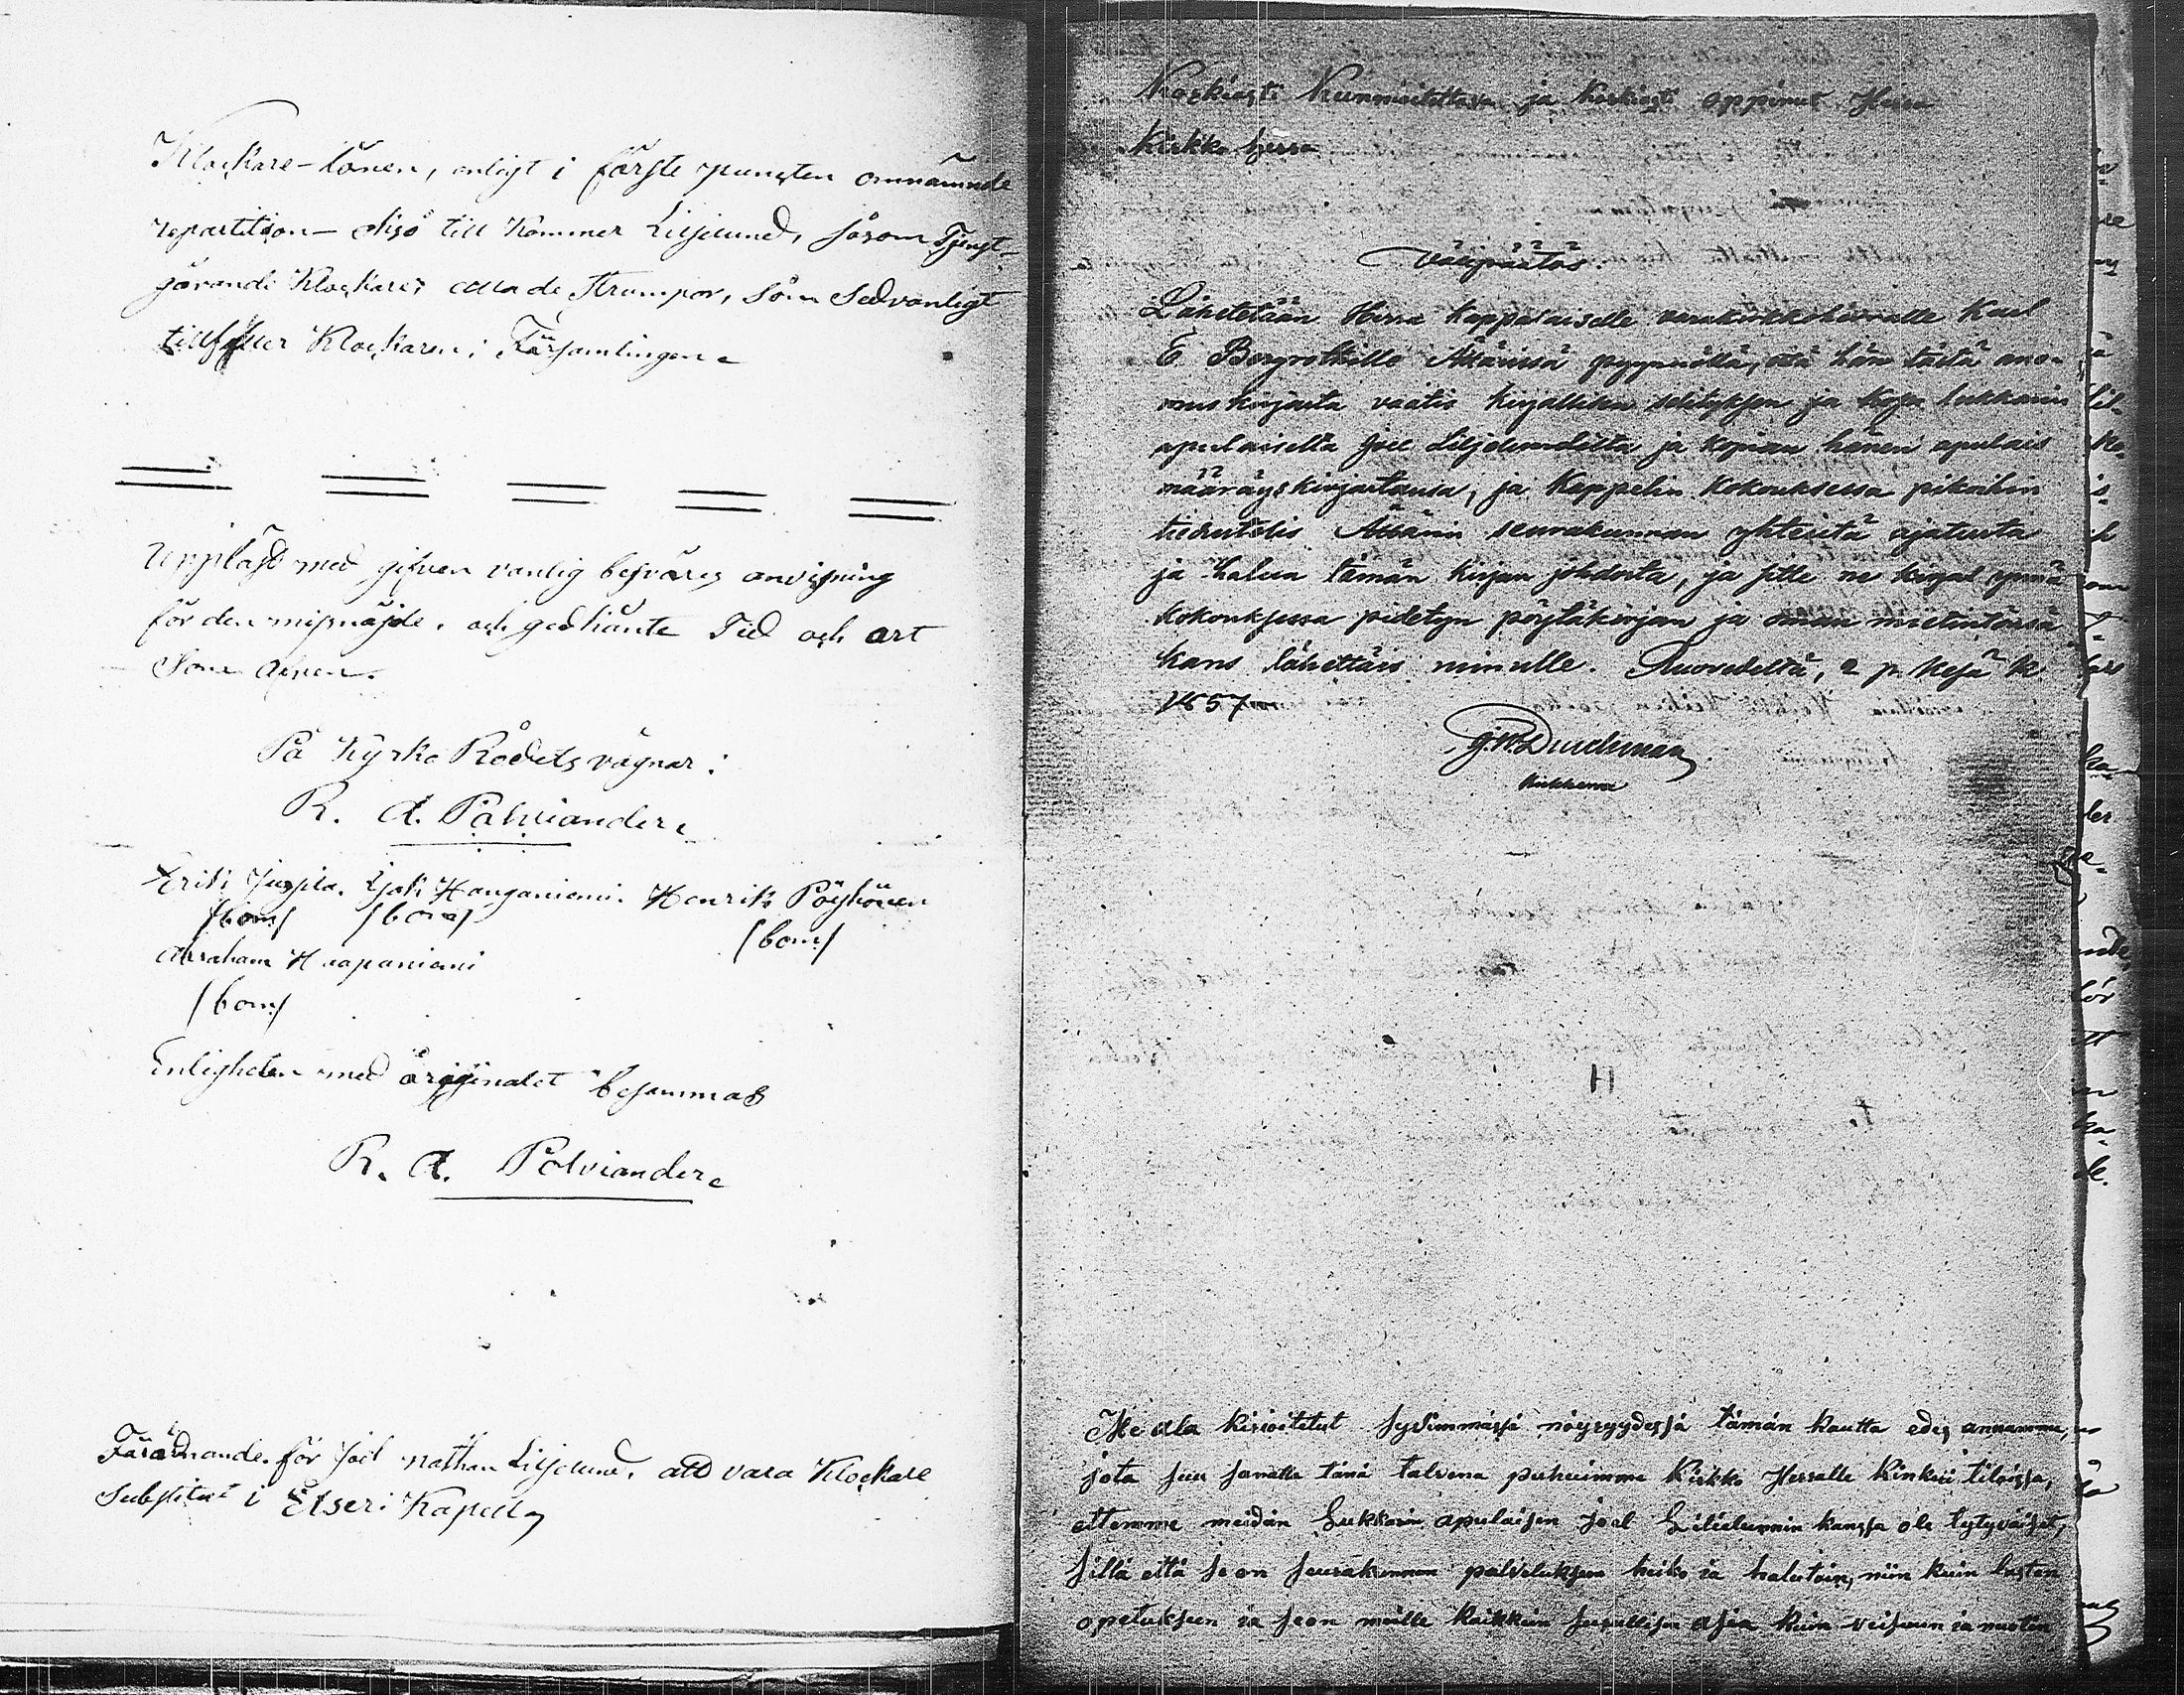 Klockare-lönen, enligt i förste puncten omnämnde
repartition – Äfső till kommer Liljelund, såsom Tjenst-
görande Klockare, alla de Strumpor, som Sedvanligt
tillfaller Klockaren i Församlingen.
Uppläst med gifven vanlig besvärs anvisning
för den misnöjde, och
som ofvan.
På Kyrko Rådets vägnar:
R. A. Polviander.
Erik Juspila. Isak Hanganiemi. Henrik Pöyhönen
/bom/ /bom/ /bom/
Abraham Haapaniemi
/bom/
Enligheten med originalet besannas
R. A. Polviander.
Förordnande för Joel Nathan Liljelund, att vara Klockare
Substitut i Etseri Kapell
Korkiasti Kunnioitettava ja korkiasti oppinut Herra
Kirkko herra
Välipäätös.
Lähetetään Herra kappalaiselle varakirkkoherralle Karl
E. Bergrothille Ätsärissä pyynnöllä, että hän tästä ano-
mus kirjasta vaatis kirjallisen selityksen ja kopian lukkarin
apulaiselta Joel Liljelundilta ja kopian hänen apulais
määräyskirjastansa, ja Kappelin kokouksessa pikoihin
tiedustelis Ätsärin seurakunnan yhteistä ajatusta
ja halua tämän kirjan johdosta, ja sitte ne kirjat ynnä
kokouksessa pidetyn pöytäkirjan ja oman mietintönsä
kans lähettäis minulle. Ruovedeltä, 2 p. kesä k.
1857
G. W. Durchman
Kirkkoherra
H
Me ala kirjoitetut sydimmässä nöyryydessä tämän kautta edes annamme,
jota suu sanalla tänä talvena puhuimme Kirkko Herralle Kinkeri tiloissa,
ettemme meidän Lukkarin apulaisen Joel Liljelunnin kanssa ole tytyväiset,
sillä että se on seurakunnan palvelukseen heiko ia halutoin, niin kuin lasten
opetukseen ia se on meille kaikkein surullisin asia kuin veisuun ia nuotin